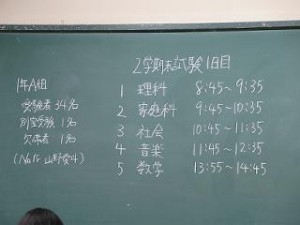 2学期末試験1日目
1年A組
受験者 34名
別室受験 1名
欠席者 1名
1 理科 8:45~9:35
2 家庭科 9:45~10:35
3 社会 10:45~11:35
4 音楽 11:45~12:35
5 数学 13:55~14:45